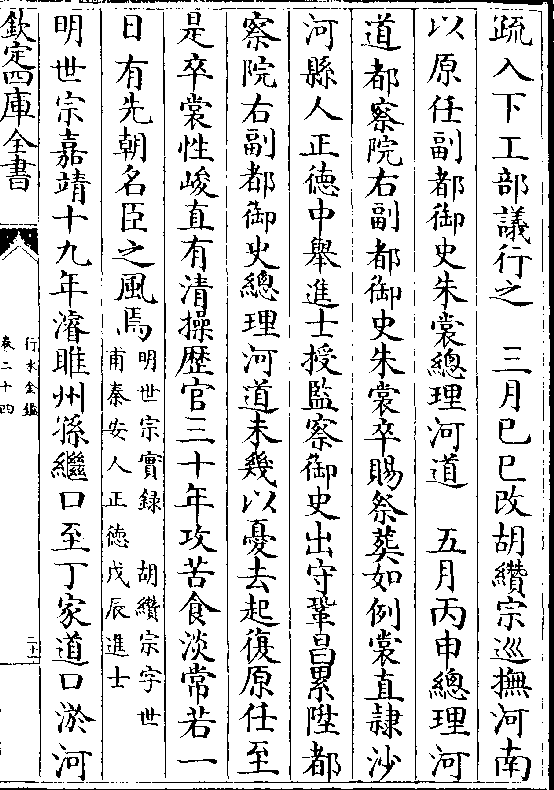 疏入下工部議行之　三月己巳改胡纘宗巡撫河南
以原任副都御史朱裳總理河道　五月丙申總理河
道都察院右副都御史朱裳卒賜祭葬如例裳直隷沙
河縣人正德中舉進士授監察御史出守鞏昌累陞都
察院右副都御史總理河道未幾以憂去起復原任至
是卒裳性峻直有清操歴官三十年攻苦食淡常若一
日有先朝名臣之風焉明世宗實録　胡纘宗字世
甫秦安人正德戊辰進士
明世宗嘉靖十九年濬睢州孫繼口至丁家道口淤河
欽定四庫全書
行水金鑑
卷二十四